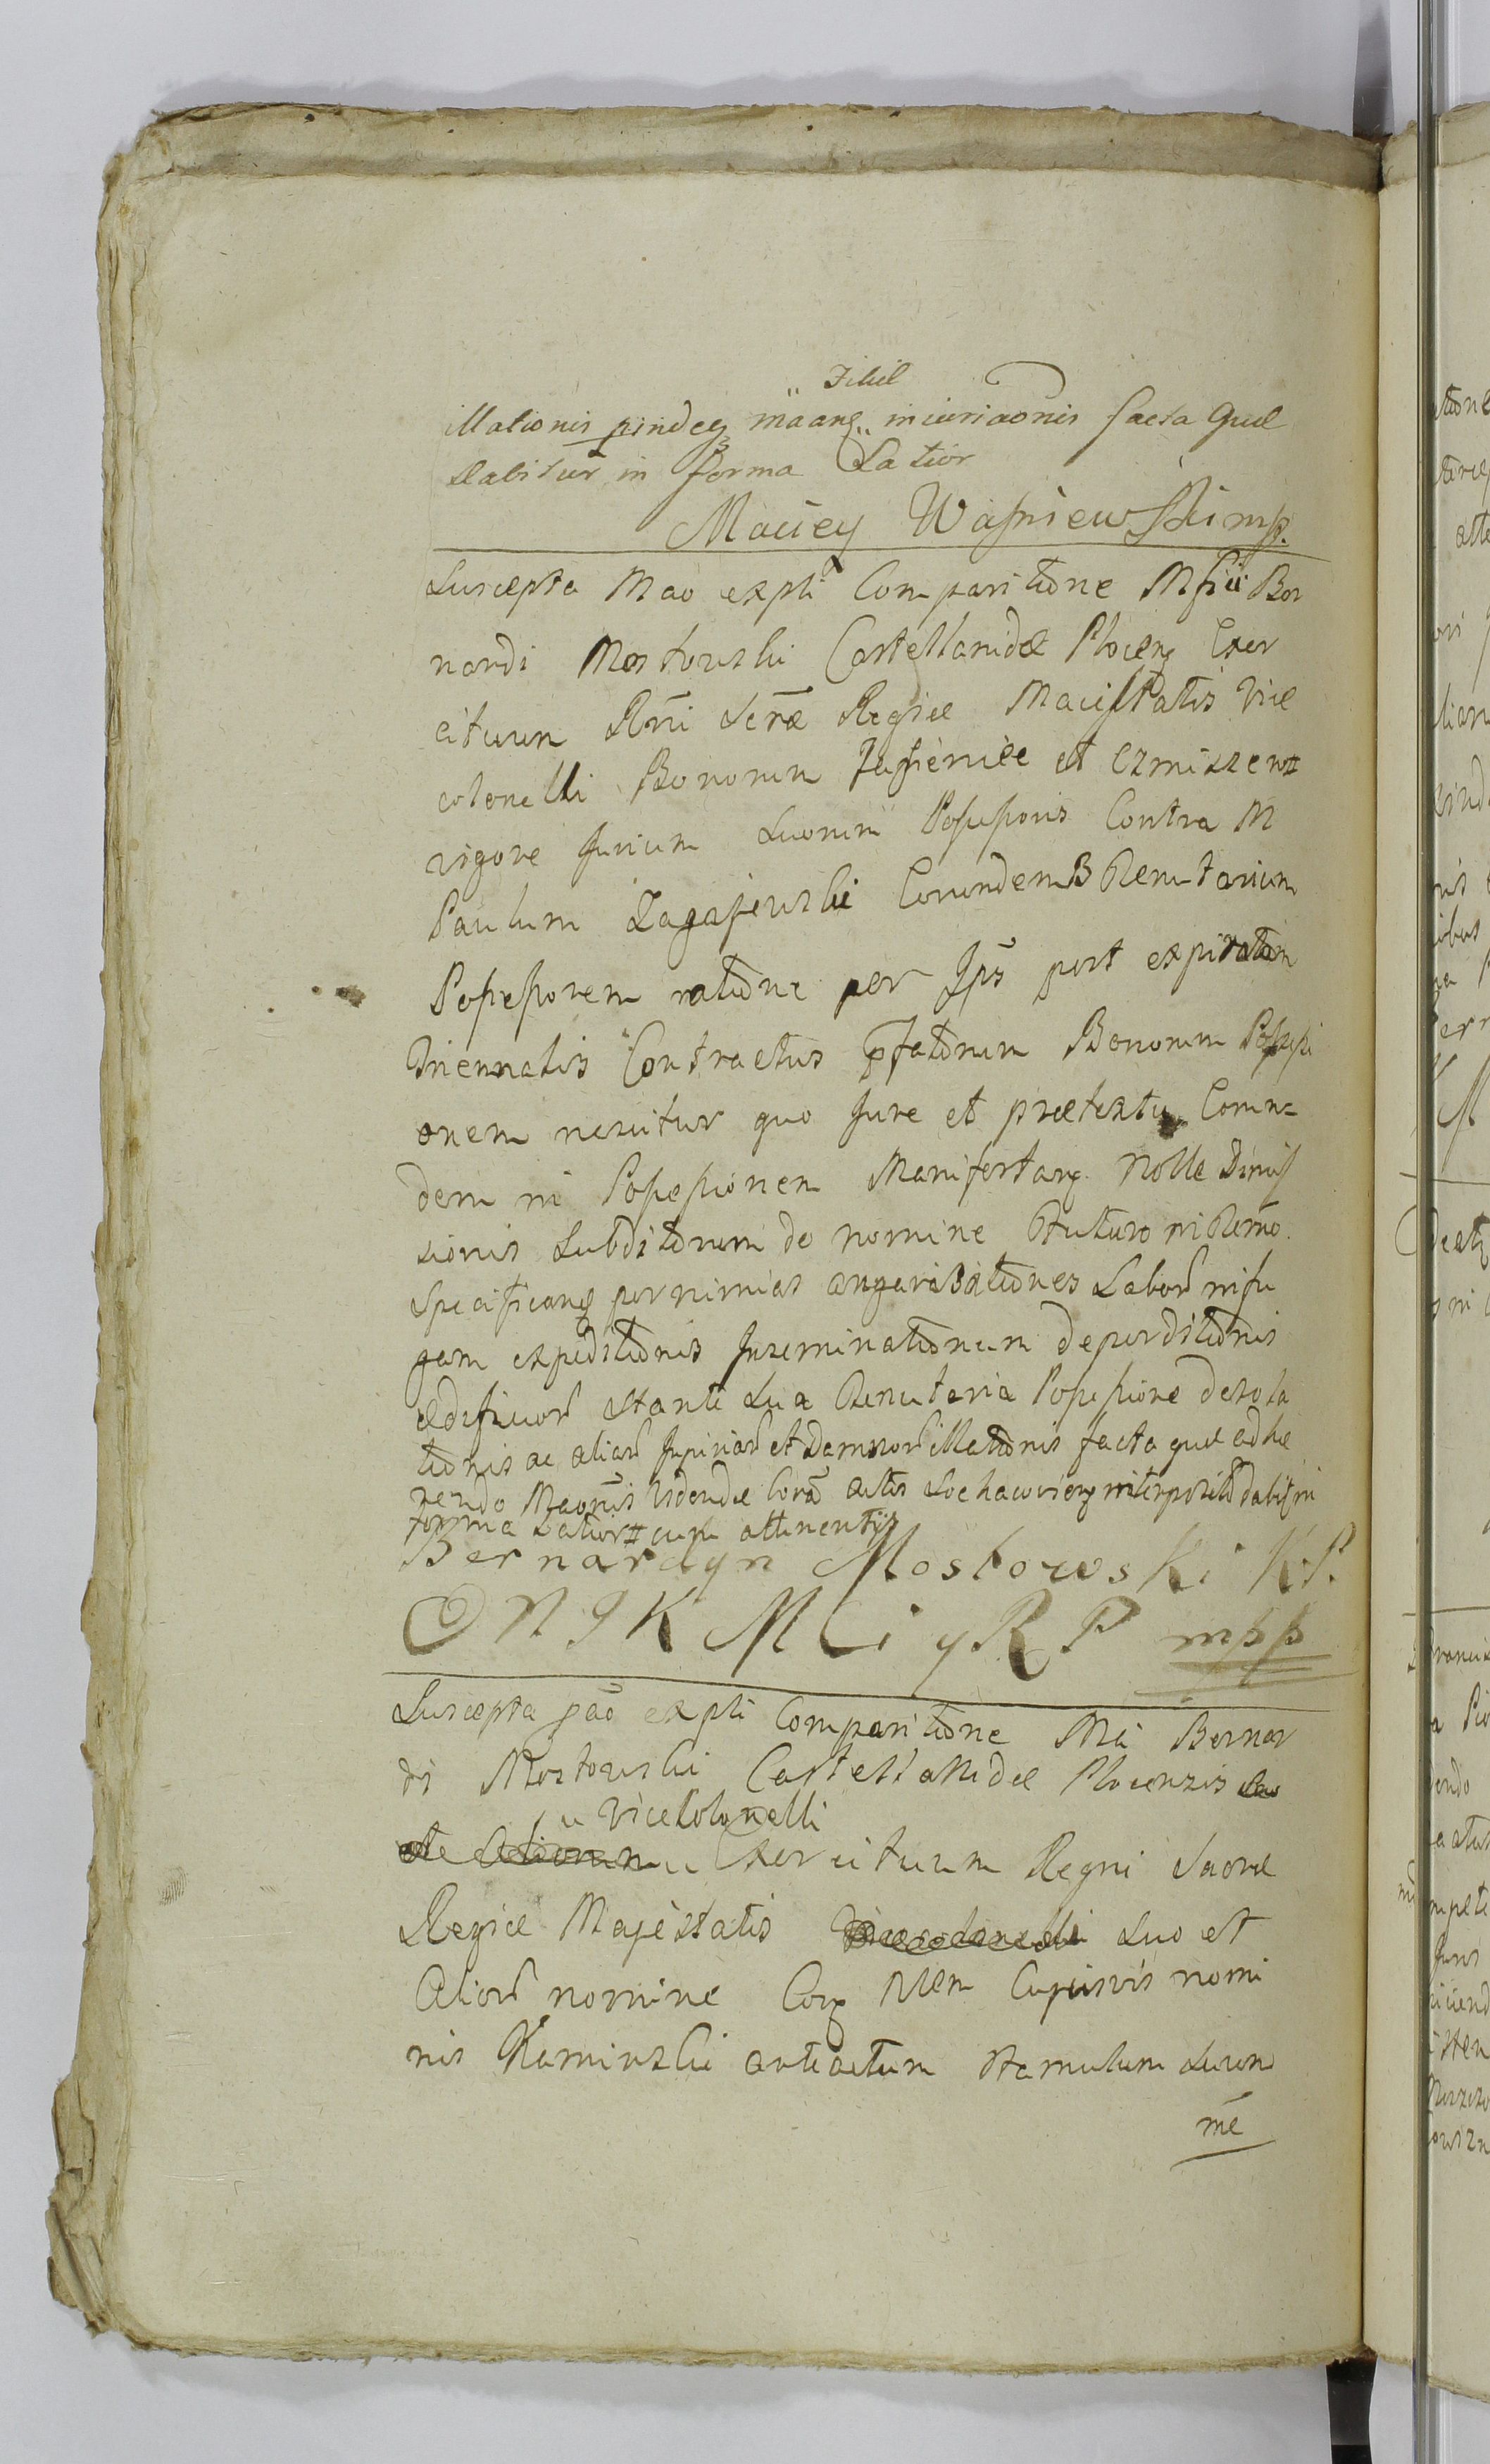 Filiel
illationis pindeq maanq inieriaonis facta quæ
dabitur in forma Latior
Maciey Wasniewski mp.
Suscepta Mao expli Comparitione Mfici Ber
nardi Mostowski Castellanidæ Plocens Exer
cituum Rni Sernæ Regiæ Maiestatis Vice
colonelli Bonorum Jasienice et Czmiszew #
vigore Jurium Suorum Possessoris Contra M
Paulum Zagajewski Eorundem B Tenutarium
Possessorem ratione per Ips post expiratam
Triennalis Contractus pfatorum Bonorum Possessi
onem nescitur quo Jure et prætextu Eorun=
dem in Possessionem Manifestanq Nolle Dimis
sionis Subditorum de nomine futuro in Remo.
Specificanq per nimias angarisationes Labor in fu
gam expeditionis Inseminationum deperditionis
ædificior stante sua Tenutaria Possessione desola
tionis ac aliar Injuriar et Damnor illationis facta quæ adhæ
rendo Maonis Videndæ Cora actis Sochaczoviens interposito dabit in
forma Latior # cum attinentijs
Bernardyn Mostowski K.P.
O N J K M C i y R P mpp
Suscepta pao expli Comparitione Mci Bernar
di Mostowski Castellanidæ Plocensis
Vicecolonelli
Exercituum Regni Sacræ
Regiæ Majestatis Suo et
Alior nomine Corq Nem Cujusvis nomi
nis Kaminski anteactum Famulum Suum
me